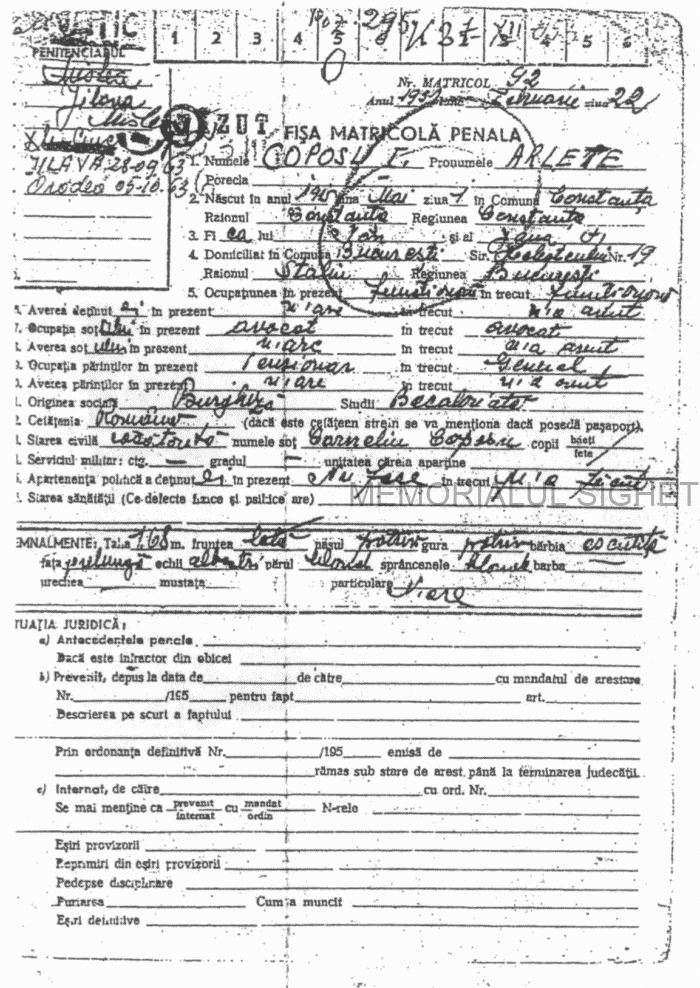 PENITENCIARUL
1 2 3 4 5 6 7 8 4 5 6
Jilava
JILAVA 28-09-63
Oradea 05-10-63
VĂZUT
Nr. MATRICOL 92
Anul 195 luna Februarie ziua 22
FIȘA MATRICOLĂ PENALA
1. Numele COPOSU I. Pronumele ARLETE
Porecla
2. Născut în anul luna Mai ziua 1 în Comuna Constanța
Raionul Constanța Regiunea Constanța
3. Fi ca lui Ion și al
4. Domiciliat în Comuna București Str. Nr. 19
Raionul Stalin Regiunea București
5. Ocupațiunea în prezent funcționară în trecut funcționară
Averea deținut ei în prezent n'are în trecut n'a avut
Ocupația soț ului în prezent avocat în trecut avocat
Averea soț ului în prezent n'are în trecut n'a avut
Ocupația părinților în prezent Pensionar în trecut General
Averea părinților în prezent n'are în trecut n'a avut
Originea socială Burgheză Studii Bacalaureat
2. Cetățenia Română (dacă este cetățeen strein se va menționa dacă posedă pașaport).
Starea civilă căsătorită numele soț Corneliu Coposu copii băieți
fete
Serviciul militar: ctg. — gradul — unitatea căreia aparține
Apartenența politică a deținut ei în prezent Nu face în trecut N'a făcut
Starea sănătății (Ce defecte fizice și psihice are)
MEMORIALUL SIGHET
EMNALMENTE: Talia 1,68 m. fruntea lată năsul potriv gura potriv bărbia ascuțită
fața prelungă ochii albaștri părul blond sprâncenele blonde barba
urechea mustața particulare N'are
TUAȚIA JURIDICĂ:
a) Antecedentele penale
Dacă este infractor din obicei
b) Prevenit, depus la data de de către cu mandatul de arestare
Nr. /195 pentru fapt art.
Descrierea pe scurt a faptului
Prin ordonanța definitivă Nr. /195 emisă de
rămas sub stare de arest până la terminarea judecății.
c) Internat, de către cu ord. Nr.
Se mai menține ca prevenit cu mandat N-rele
internat ordin
Eșiri provizorii
Reprimiri din eșiri provizorii
Pedepse disciplinare
Purtarea Cum a muncit
Eșiri definitive